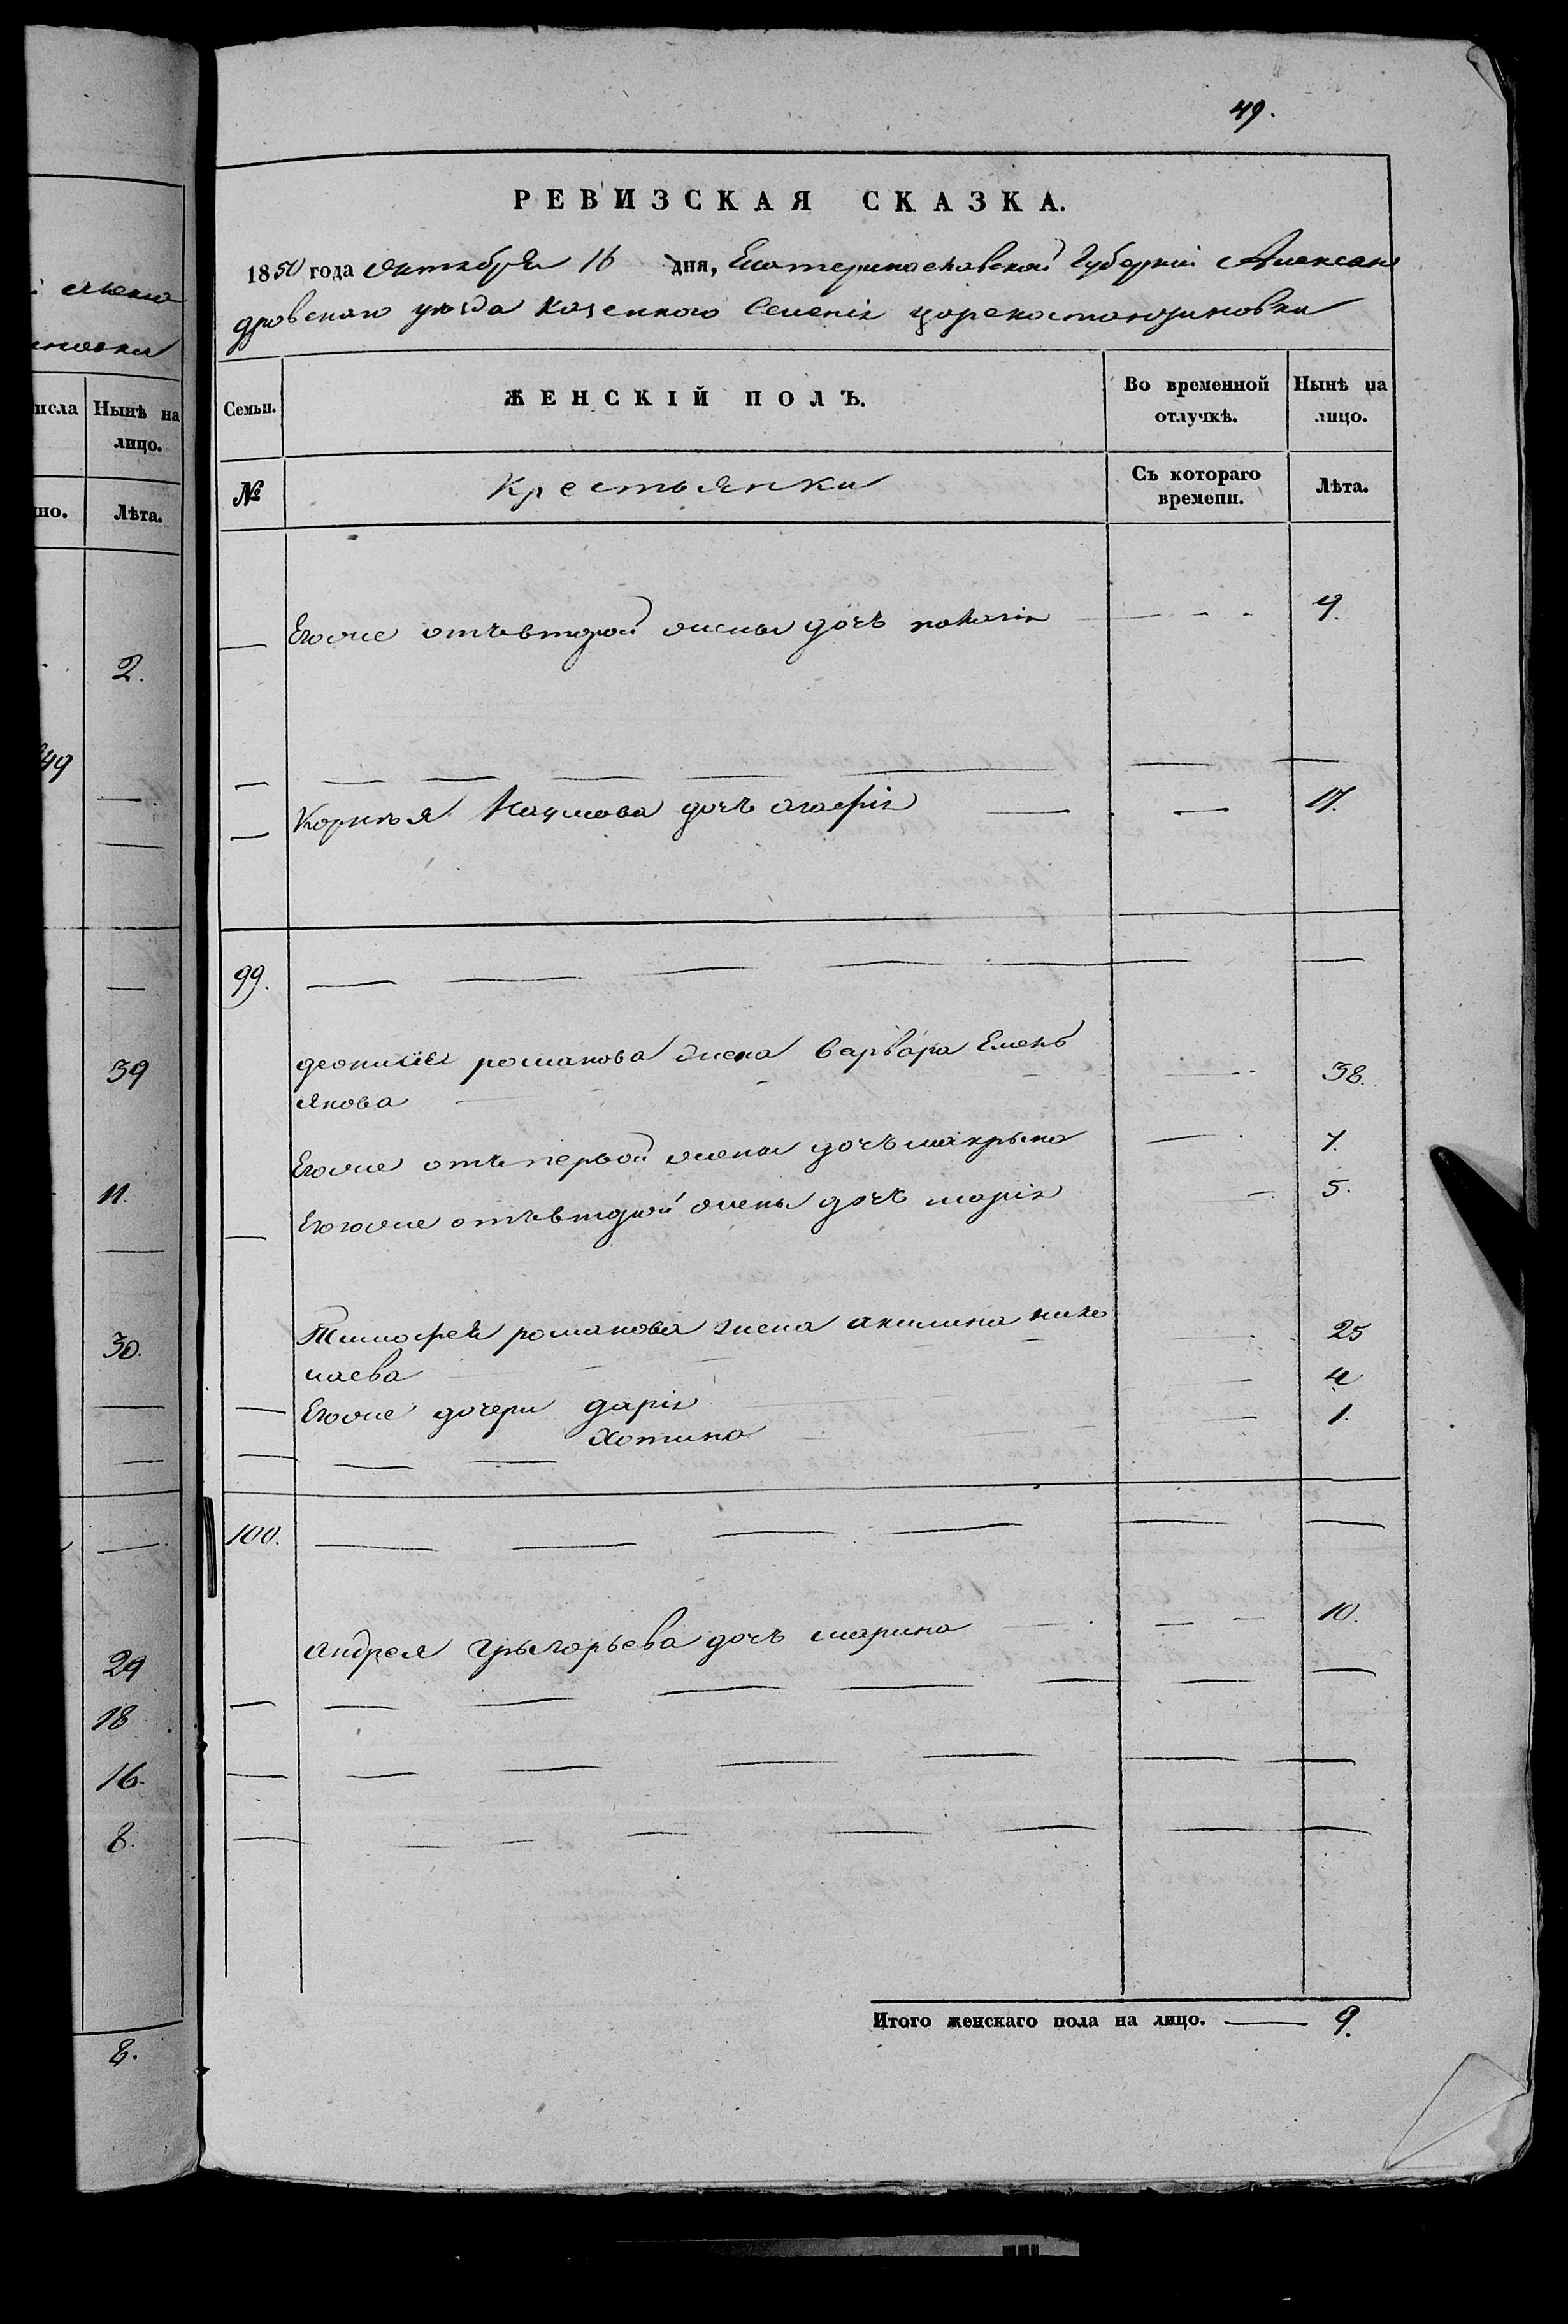 49.
РЕВИЗСКАЯ СКАЗКА.
1850 года Октября 16 дня, Екатеринославской Губерніи Алексан
дровскаго уѣзда казенного Селенія Цареконстантиновки
Семьи. ЖЕНСКІЙ ПОЛЪ. Во временной отлучкѣ. Нынѣ на лицо.
№ Крестьянки Съ котораго времени. Лѣта.
Егоже отъ второй жены дочь 9.
Корнѣя Наумова дочь агафія 17.
99.
деонисія романова жена варвара Емень
янова 38.
Егоже отъ первой жены дочь макрына 7.
Егоже отъ второй жены дочь марія 5.
Тимофея романова жена акилина нико
лаева 25
Егоже дочери дарія 4
хотина 1.
100.
андрея Грыгорьева дочь марина 10.
Итого женскаго пола на лицо. 9.
исла Нынѣ на лицо.
но. Лѣта.
2.
49
39
11.
30.
29
18
16.
8.
8.